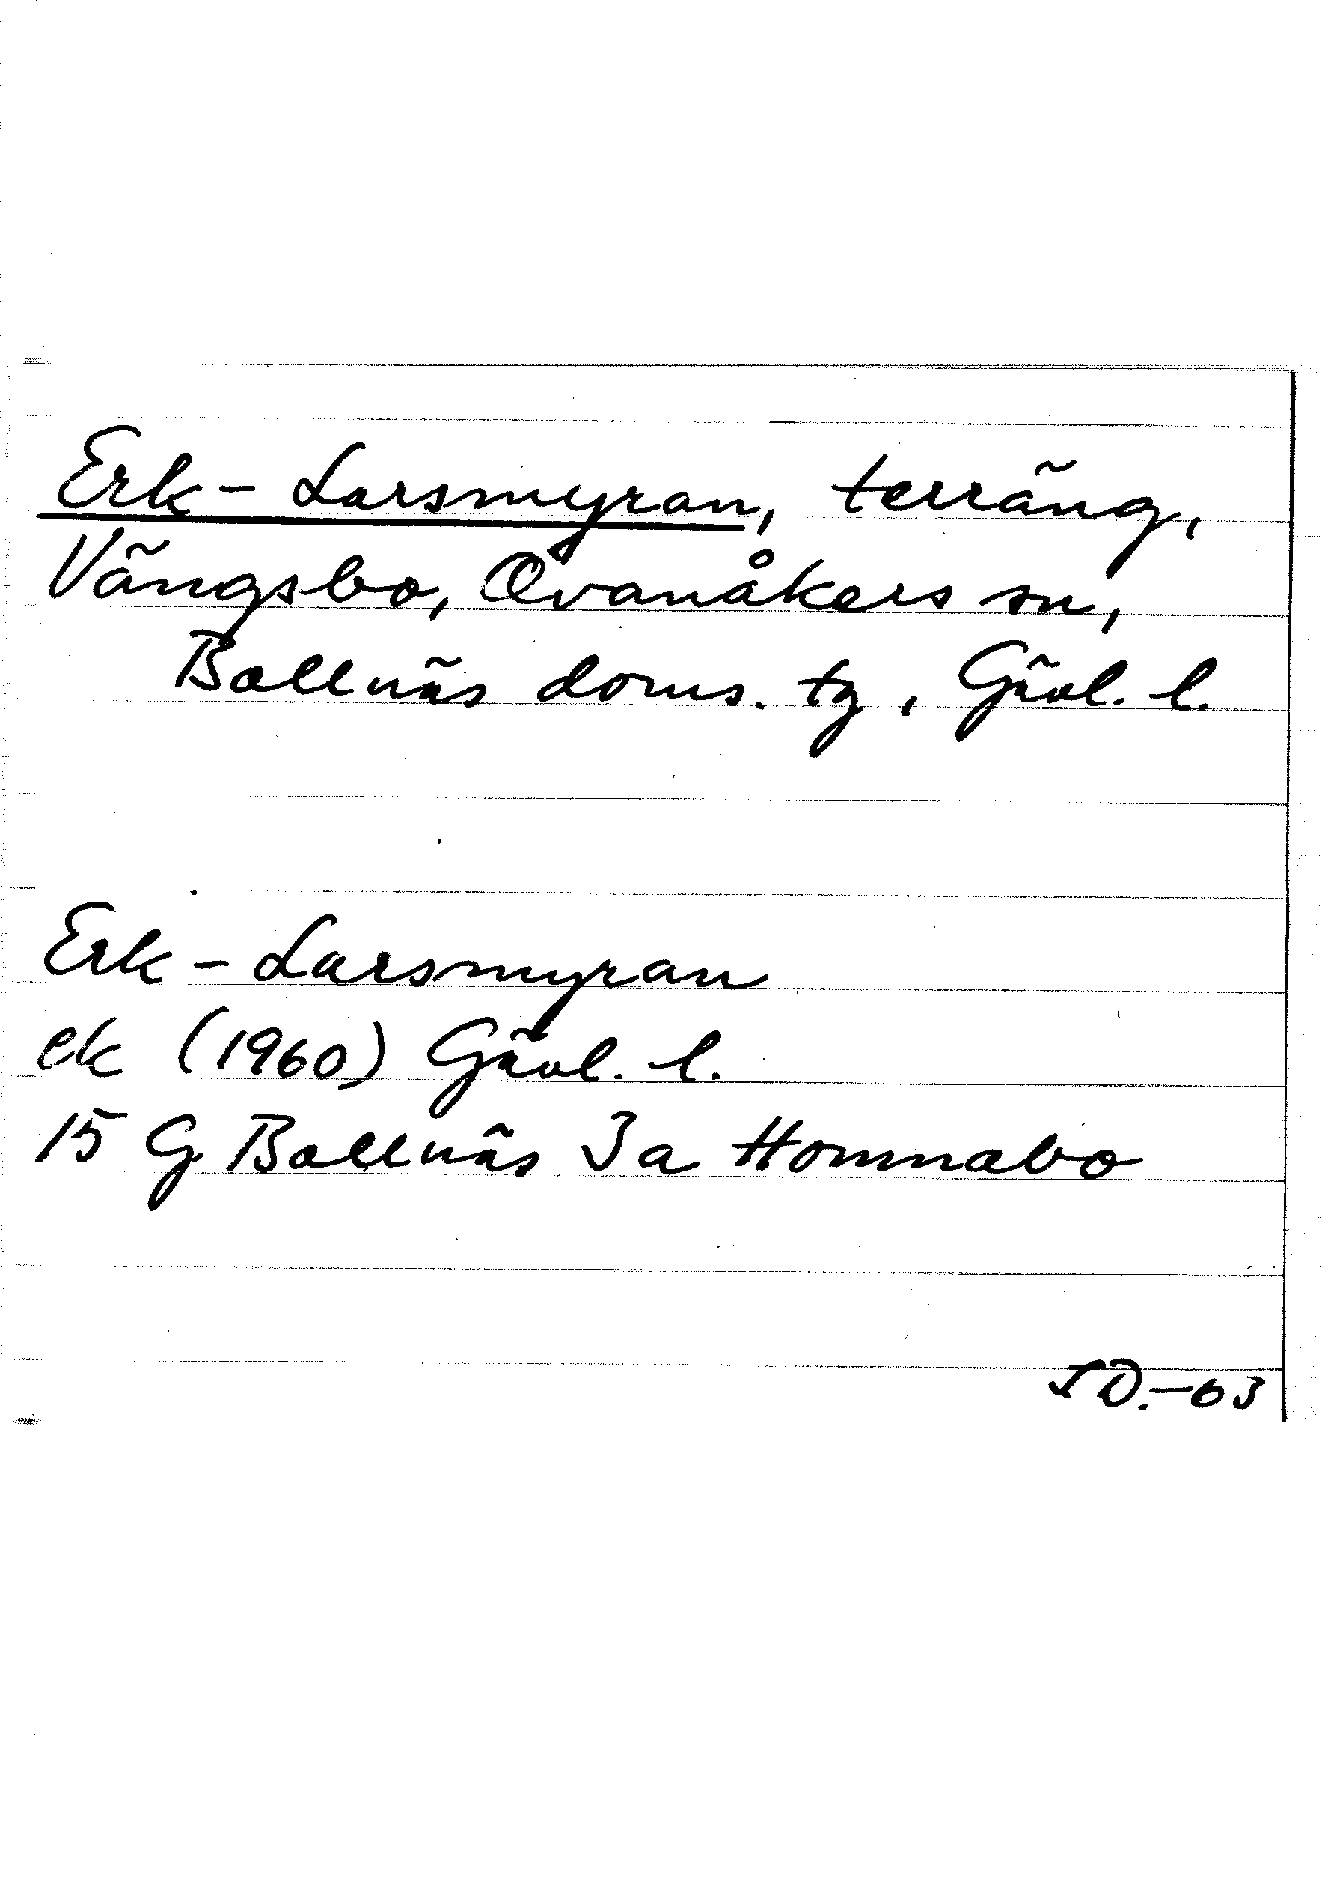 Erk-Larsmyran, terräng,
Vängsbo, Ovanåkers sn,
Bollnäs doms. tg, Gävl. l.
Erk-Larsmyran
ek (1960) Gävl. l.
15 G Bollnäs 3a Homnabo
SD.-63